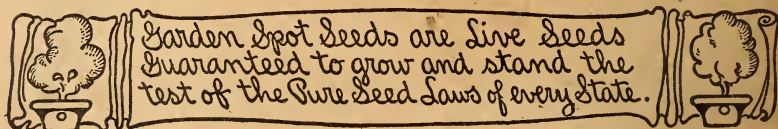 Garden Spot Seeds are Live Seeds
Guaranteed to grow and stand the
test of the Pure Seed Laws of every State.